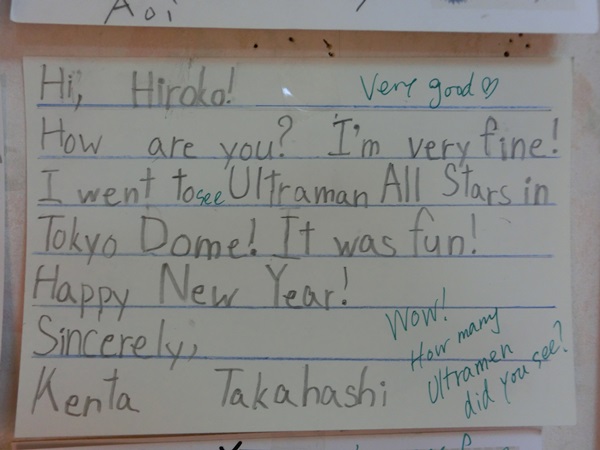 Aoi
Hi, Hiroko!
Very good ♡
How are you? I'm very fine!
I went to see Ultraman All Stars in
Tokyo Dome! It was fun!
Happy New Year!
Sincerely,
Kenta Takahashi
Wow!
How many
Ultramen
did you see?